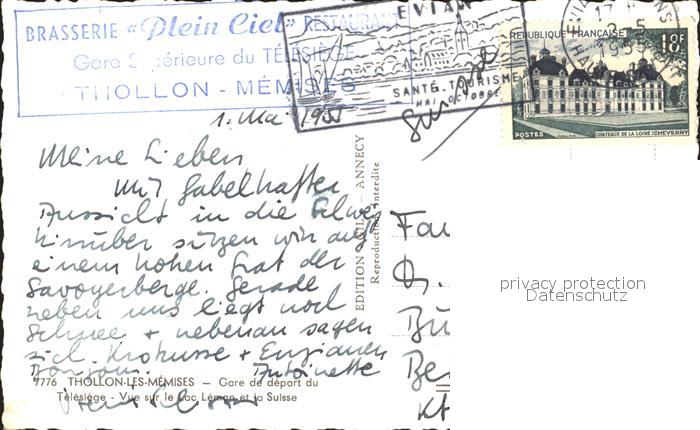 BRASSERIE «Plein Ciel» RESTAURANT
Gare Supérieure du TÉLÉSIÈGE
- THOLLON - MÉMISES -
EVIAN
SANTÉ. TOURISME
MAI OCTOBRE
2-5
1955
REPUBLIQUE FRANÇAISE
18F
POSTES
CHATEAUX DE LA LOIRE (CHEVERNY)
1. Mai 1955
Meine Lieben,
Mit fabelhafter
Aussicht in die
hinüber sitzen wir auf
einem hohen Grat der
Savoyerberge. Gerade
neben uns liegt noch
Schnee + nebenan sagen
sich Krokusse + Enzianen
Bonjour. Antoinette
EDITION - ANNECY
Reproduction interdite
Fa
Q.
Bü
Be
Kt
privacy protection
Datenschutz
7776 THOLLON-LES-MÉMISES — Gare de départ du
Télésiège - Vue sur le Lac Léman et la Suisse